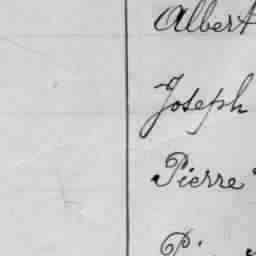 Albert
Joseph
Pierre